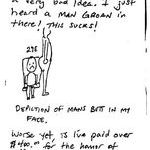 a very bad idea. I just
heard a MAN GROAN in
there! THIS SUCKS!
DEPICTION OF MANS BUTT IN MY
FACE.
Worse yet, is I've paid over
for the honor of